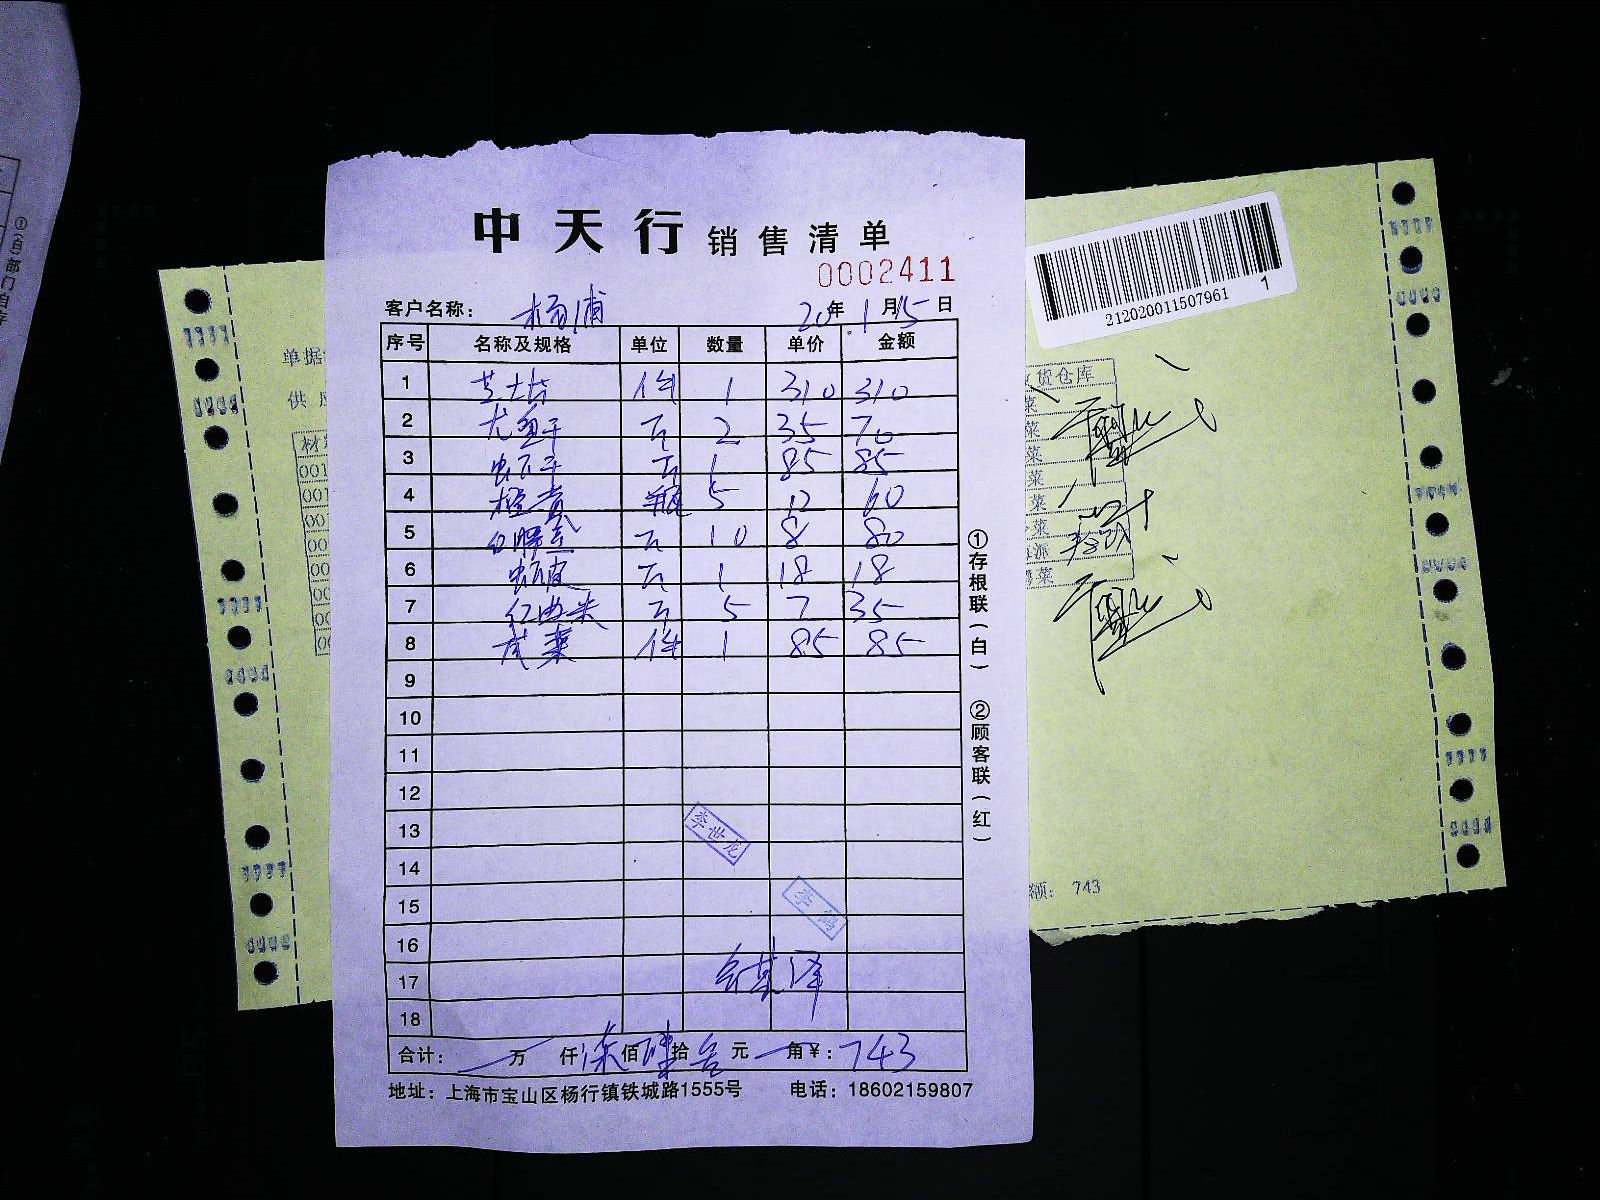 中天行 销售清单
0002411
客户名称： 杨浦 20年 1月15日
序号 名称及规格 单位 数量 单价 金额
1 芝士片 件 1 310 310
2 尤鱼干 斤 2 35 70
3 虾干 斤 1 85 85
4 橙 瓶 5 12 60
5 10 8 80
6 虾皮 斤 1 18 18
7 红曲米 斤 5 7 35
8 咸菜 件 1 85 85
9
10
11
12
13
14
15
16
17
18
李世龙
合计： 万 仟 柒佰 肆拾 叁元 角 ¥：743
地址：上海市宝山区杨行镇铁城路1555号 电话：18602159807
①存根联（白） ②顾客联（红）
212020011507961 1
单据
供
材
001
001
货仓库
菜
菜
菜
菜
菜
菜
派
菜
额： 743
①(白)部门自存